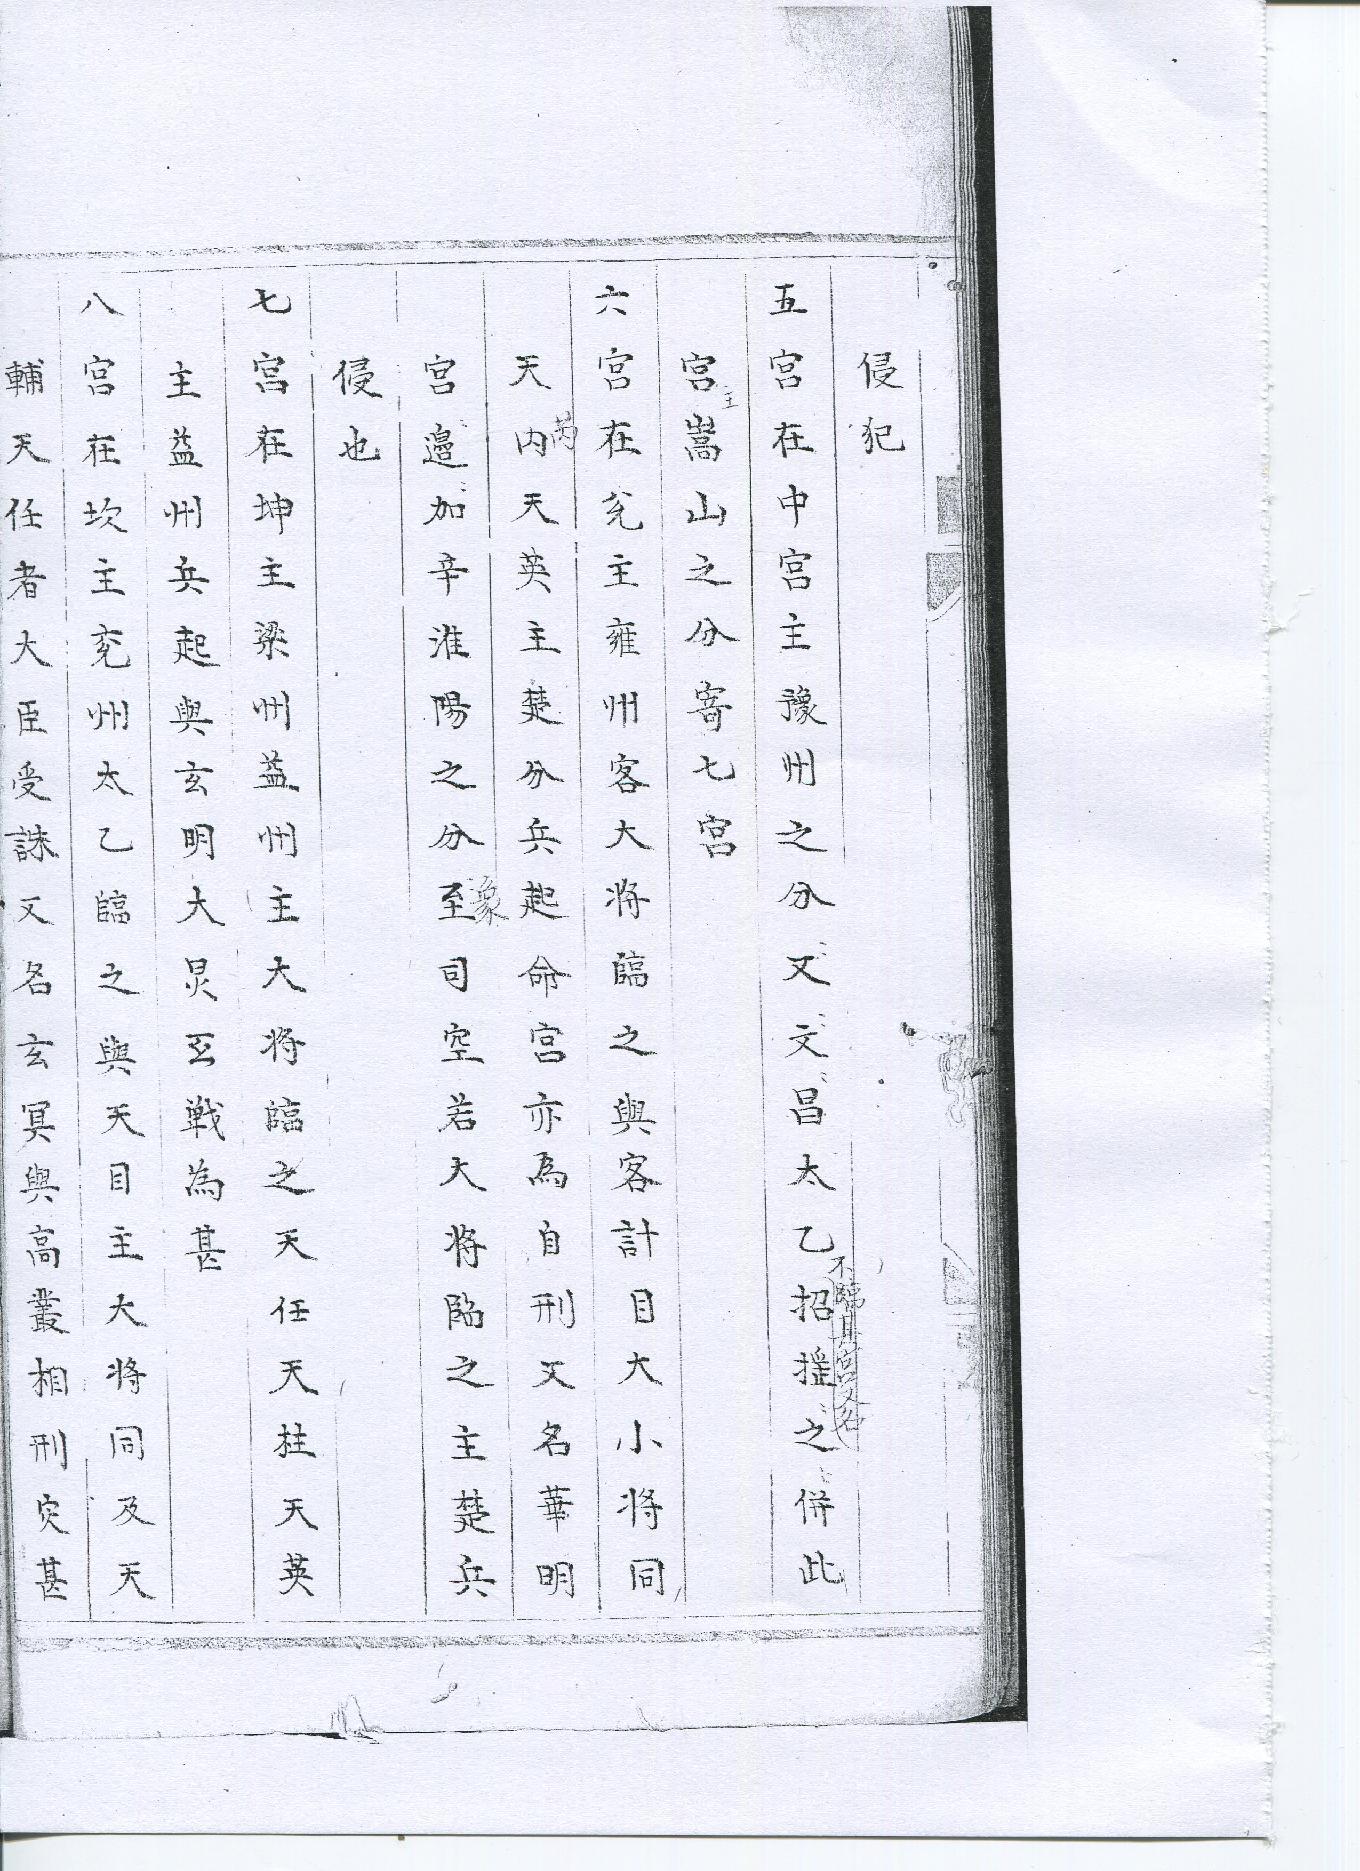 侵犯
五宮在中宮主豫州之分又文昌太乙招搖之併此
不臨其宮又名
宮嵩山之分寄七宮
主
六宮在兊主雍州客大将臨之與客計目大小将同
天内天英主楚分兵起命宮亦為自刑又名華明
芮
宮邉加辛淮陽之分至司空若大将臨之主楚兵
象
侵也
七宮在坤主梁州益州主大将臨之天任天柱天英
主益州兵起與玄明大炅至戰為甚
八宮在坎主兗州太乙臨之與天目主大将同及天
輔天任者大臣受誅又名玄冥與高叢相刑灾甚